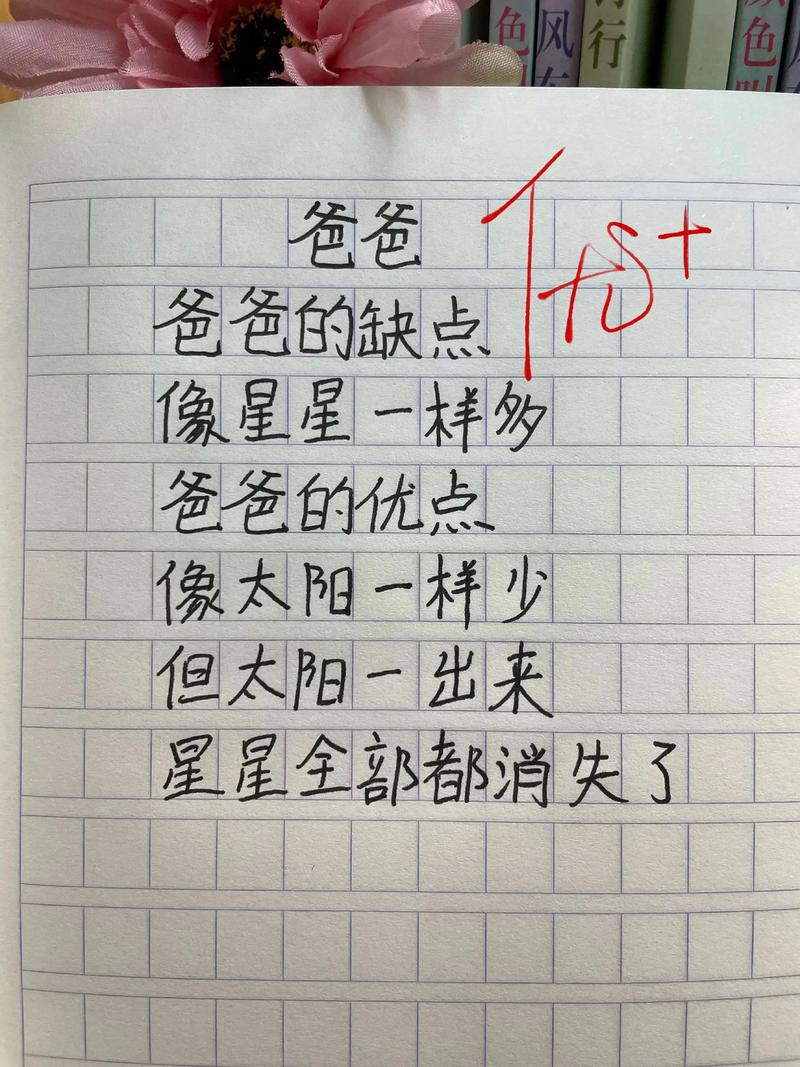 色
风
行
色
爸爸
优+
爸爸的缺点
像星星一样多
爸爸的优点
像太阳一样少
但太阳一出来
星星全部都消失了